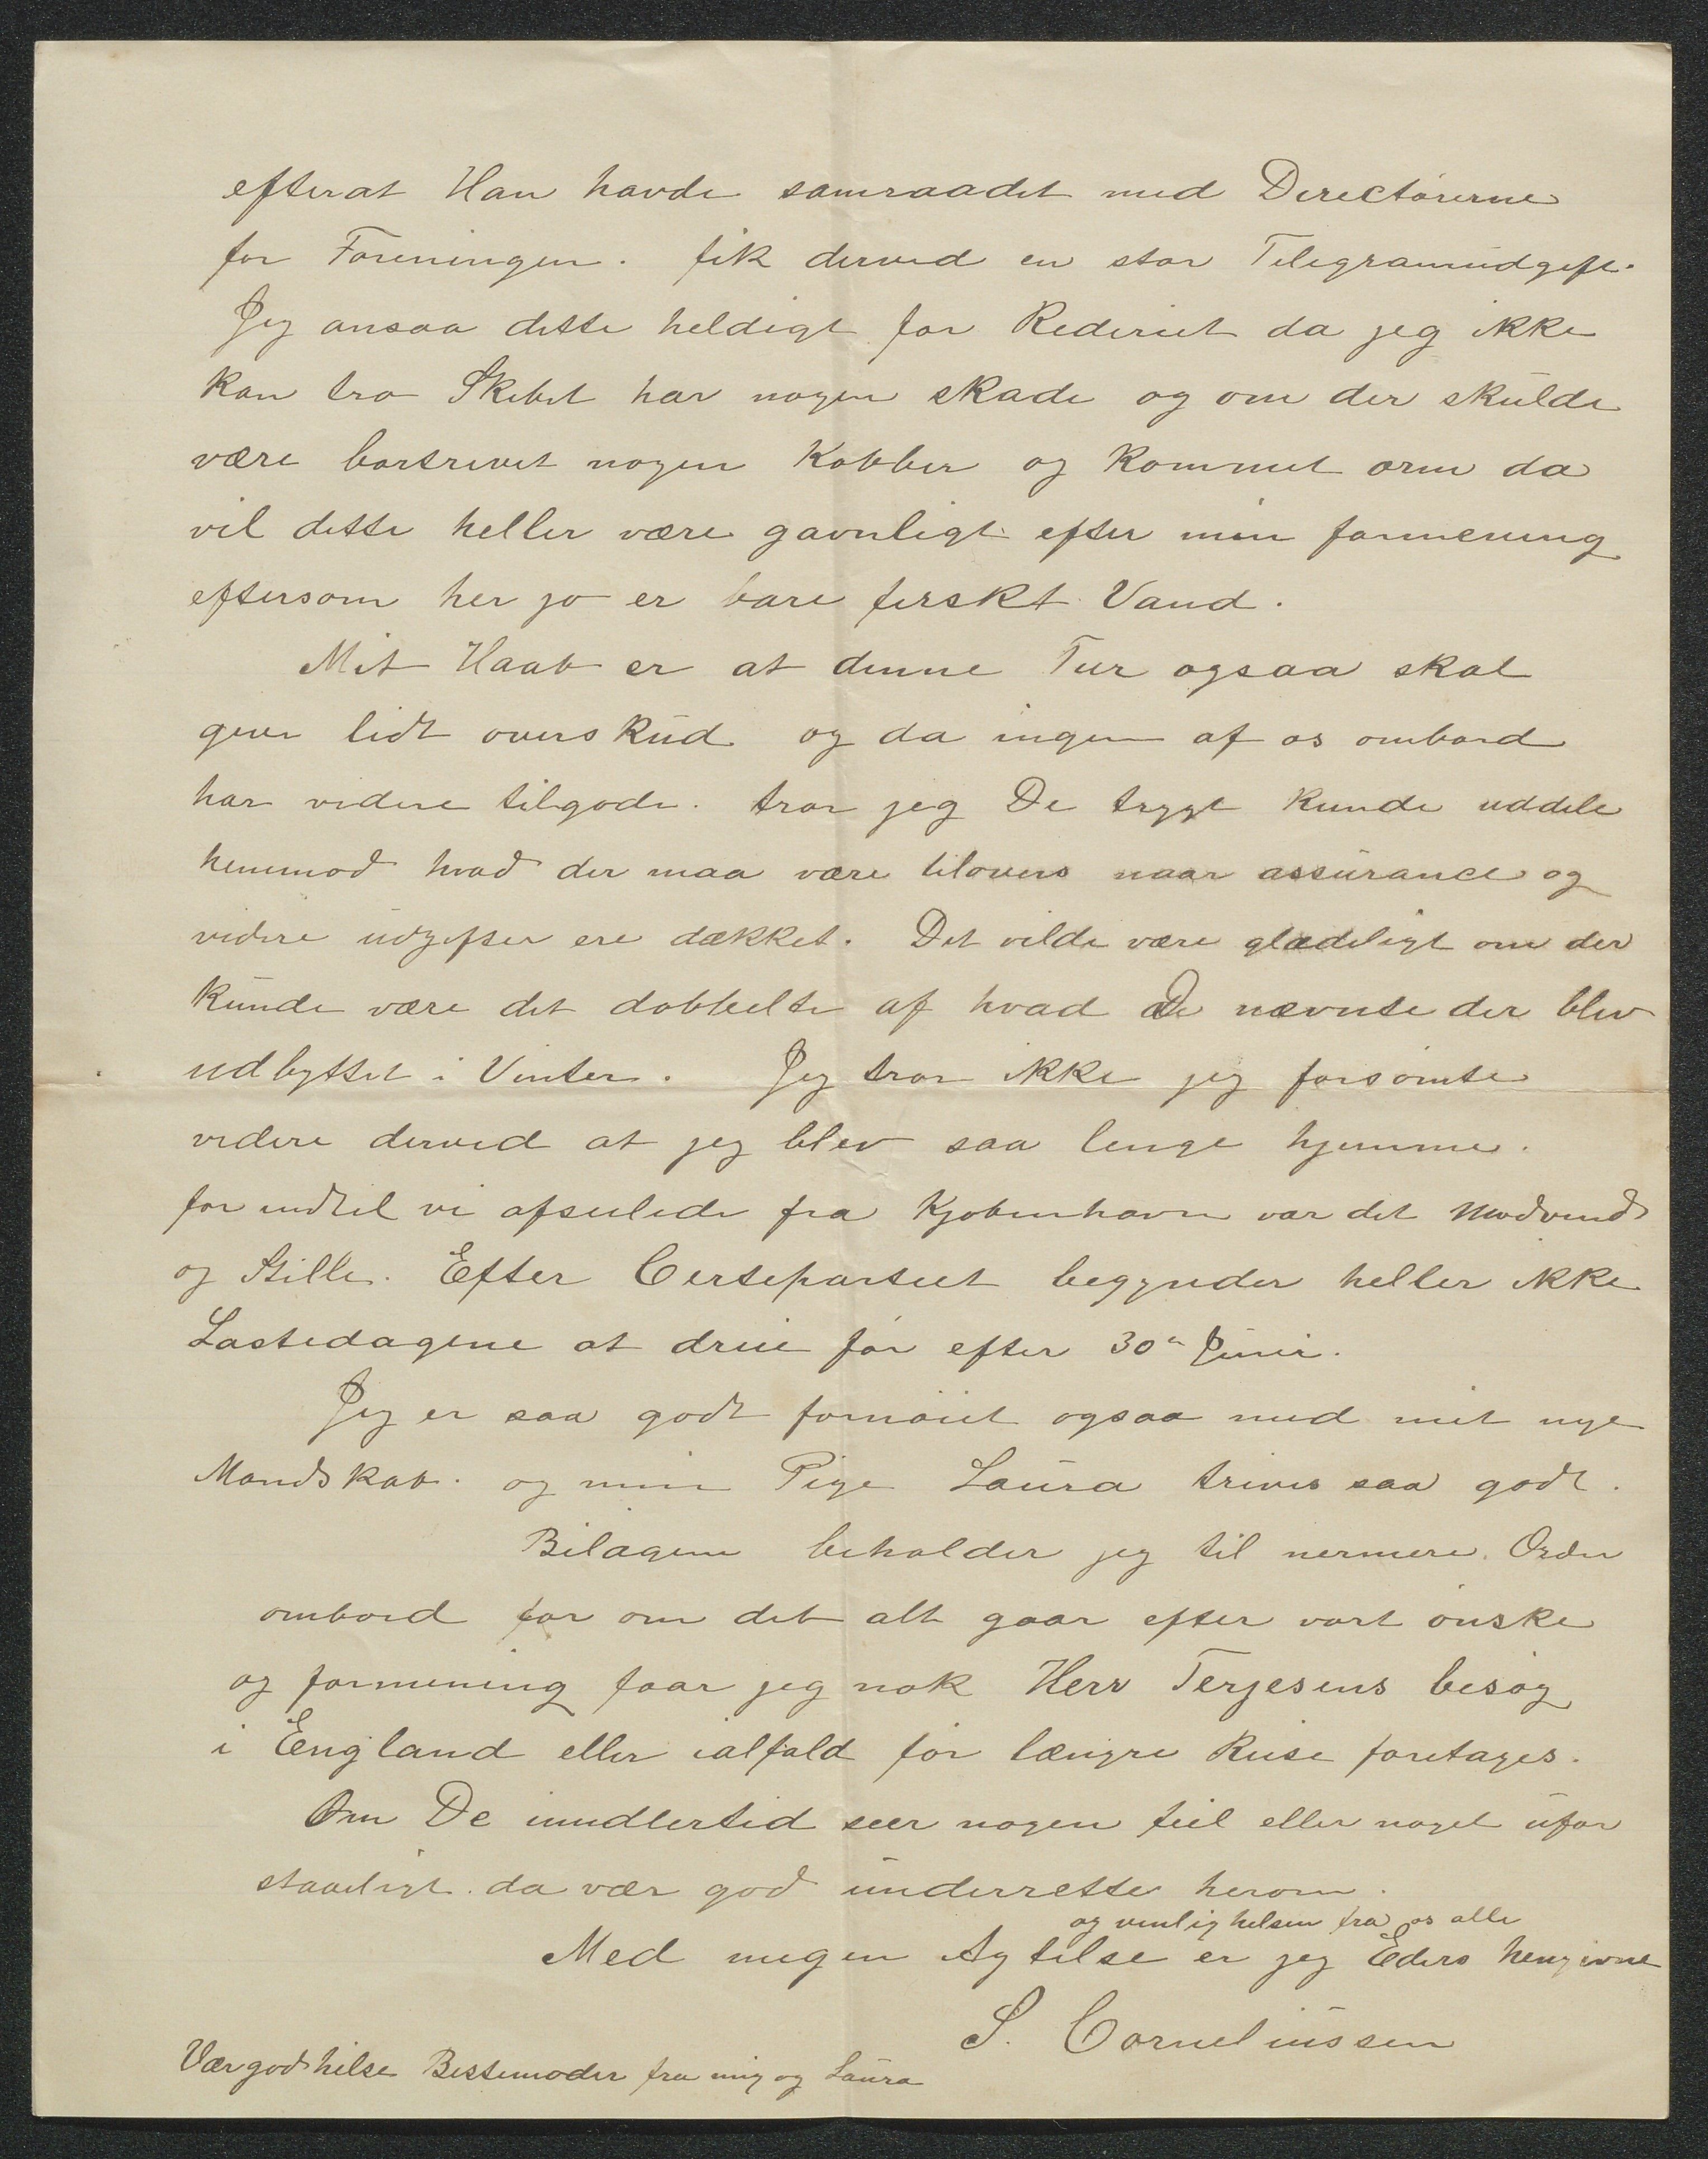 efterat Han havde samraadet med Directörerne
for Foreningen. fik derved en stor Telegramüdgift.
Jeg ansaa dette heldigt for Rederiet da jeg ikke
kan tro Skibet har nogen skade og om der skülde
være bortrevet nogen Kobber og kommet orm da
vil dette heller være gavnligt efter min formening
eftersom her jo er bare ferskt Vand.
Mit Haab er at denne Tur ogsaa skal
give lidt oversküd og da ingen af os ombord
har videre tilgode. tror jeg De trygt kunde uddele
hennmod hvad der maa være tilovers naar assürance og
videre üdgifter ere dækket. Det vilde være glædeligt om der
künde være det dobbelte af hvad De nævnte der blev
udbyttet i Vinter. Jeg tror ikke jeg forsömte
videre derved at jeg blev saa lenge hjemme.
for indtil vi afseilede fra Kjobenhavn var det Modvind
og Stille. Efter Certepartiet begynder heller ikke
Lastedagene at dreie för efter 30n Jüni.
Jeg er saa godt fornöiet ogsaa med mit nye
Mandskab. og min Pige Laüra trives saa godt.
Bilagene beholder jeg til nermere Order
ombord for om det alt gaar efter vort önske
og formening faar jeg nok Herr Terjesens besög
i England eller ialfald för længre Reise foretages.
Om De imidlertid seer nogen feil eller noget üfor
staaeligt. da vær god ünderrette herom.
og venlig helsen fra os alle
Med megen Agtelse er jeg Eders hengivne
S. Corneliüssen
Vær god hilse Bestemoder fra mig og Laüra